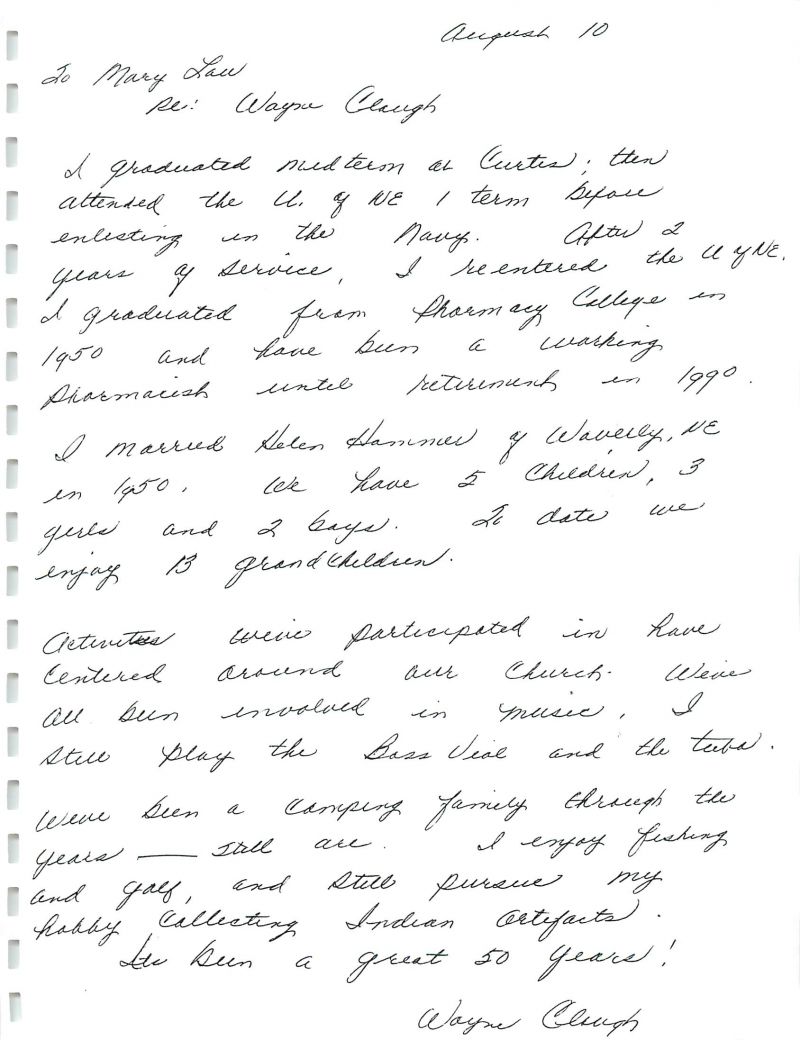 August 10
To Mary Lou
Re: Wayne Clough
I graduated midterm at Curtis; then
attended the U. of NE 1 term before
enlisting in the Navy. After 2
years of service, I reentered the U of NE.
I graduated from Pharmacy College in
1950 and have been a working
Pharmacist until retirement in 1990.
I married Helen Hammer of Waverly, NE
in 1950. We have 5 children, 3
girls and 2 boys. To date we
enjoy 13 grandchildren.
Activities weve participated in have
centered around our church. Weve
all been involved in music, I
still play the Bass Viol and the tuba.
Weve been a camping family through the
years — still are. I enjoy fishing
and golf, and still pursue my
hobby collecting Indian artifacts.
Its been a great 50 years!
Wayne Clough